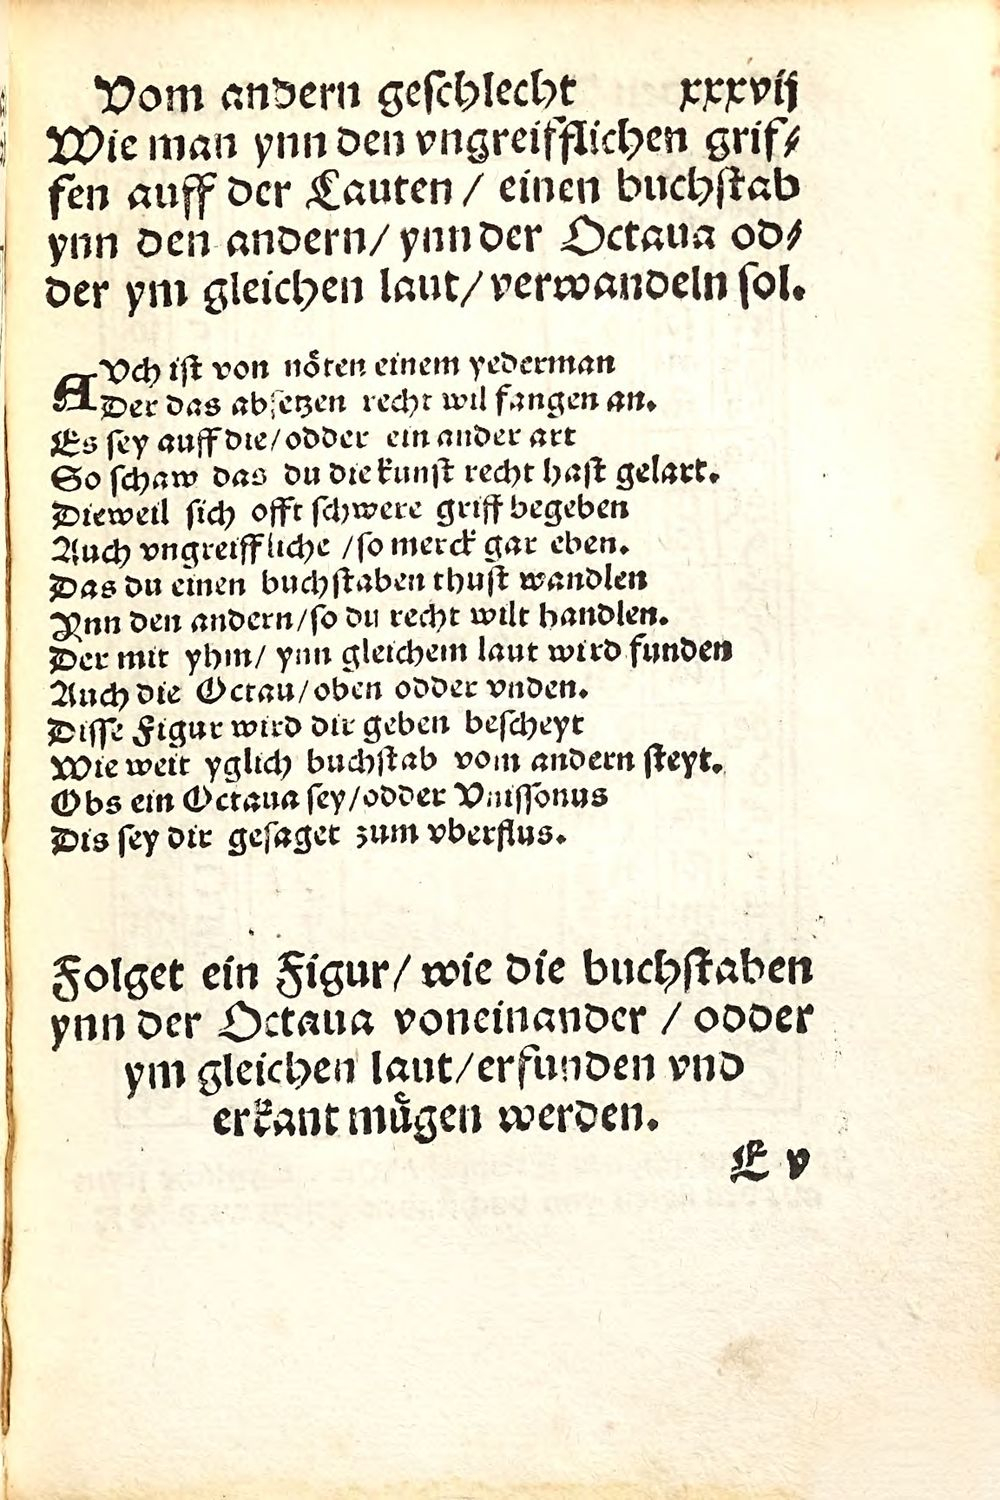 Vom andern geschlecht xxxvij
Wie man ynn den vngreifflichen grif⸗
fen auff der Lauten / einen buchstab
ynn den andern / ynn der Octaua od⸗
der ym gleichen laut / verwandeln sol.
AVch ist von nöten einem yederman
Der das absetzen recht wil fangen an.
Es sey auff die / odder ein ander art
So schaw das du die kunst recht hast gelart.
Dieweil sich offt schwere griff begeben
Auch vngreiffliche / so merck gar eben.
Das du einen buchstaben thust wandlen
Ynn den andern / so du recht wilt handlen.
Der mit yhm / ynn gleichem laut wird funden
Auch die Octau / oben odder vnden.
Disse Figur wird dir geben bescheyt
Wie weit yglich buchstab vom andern steyt.
Obs ein Octaua sey / odder Vnissonus
Dis sey dir gesaget zum vberflus.
Folget ein Figur / wie die buchstaben
ynn der Octaua voneinander / odder
ym gleichen laut / erfunden vnd
erkant mügen werden.
E v